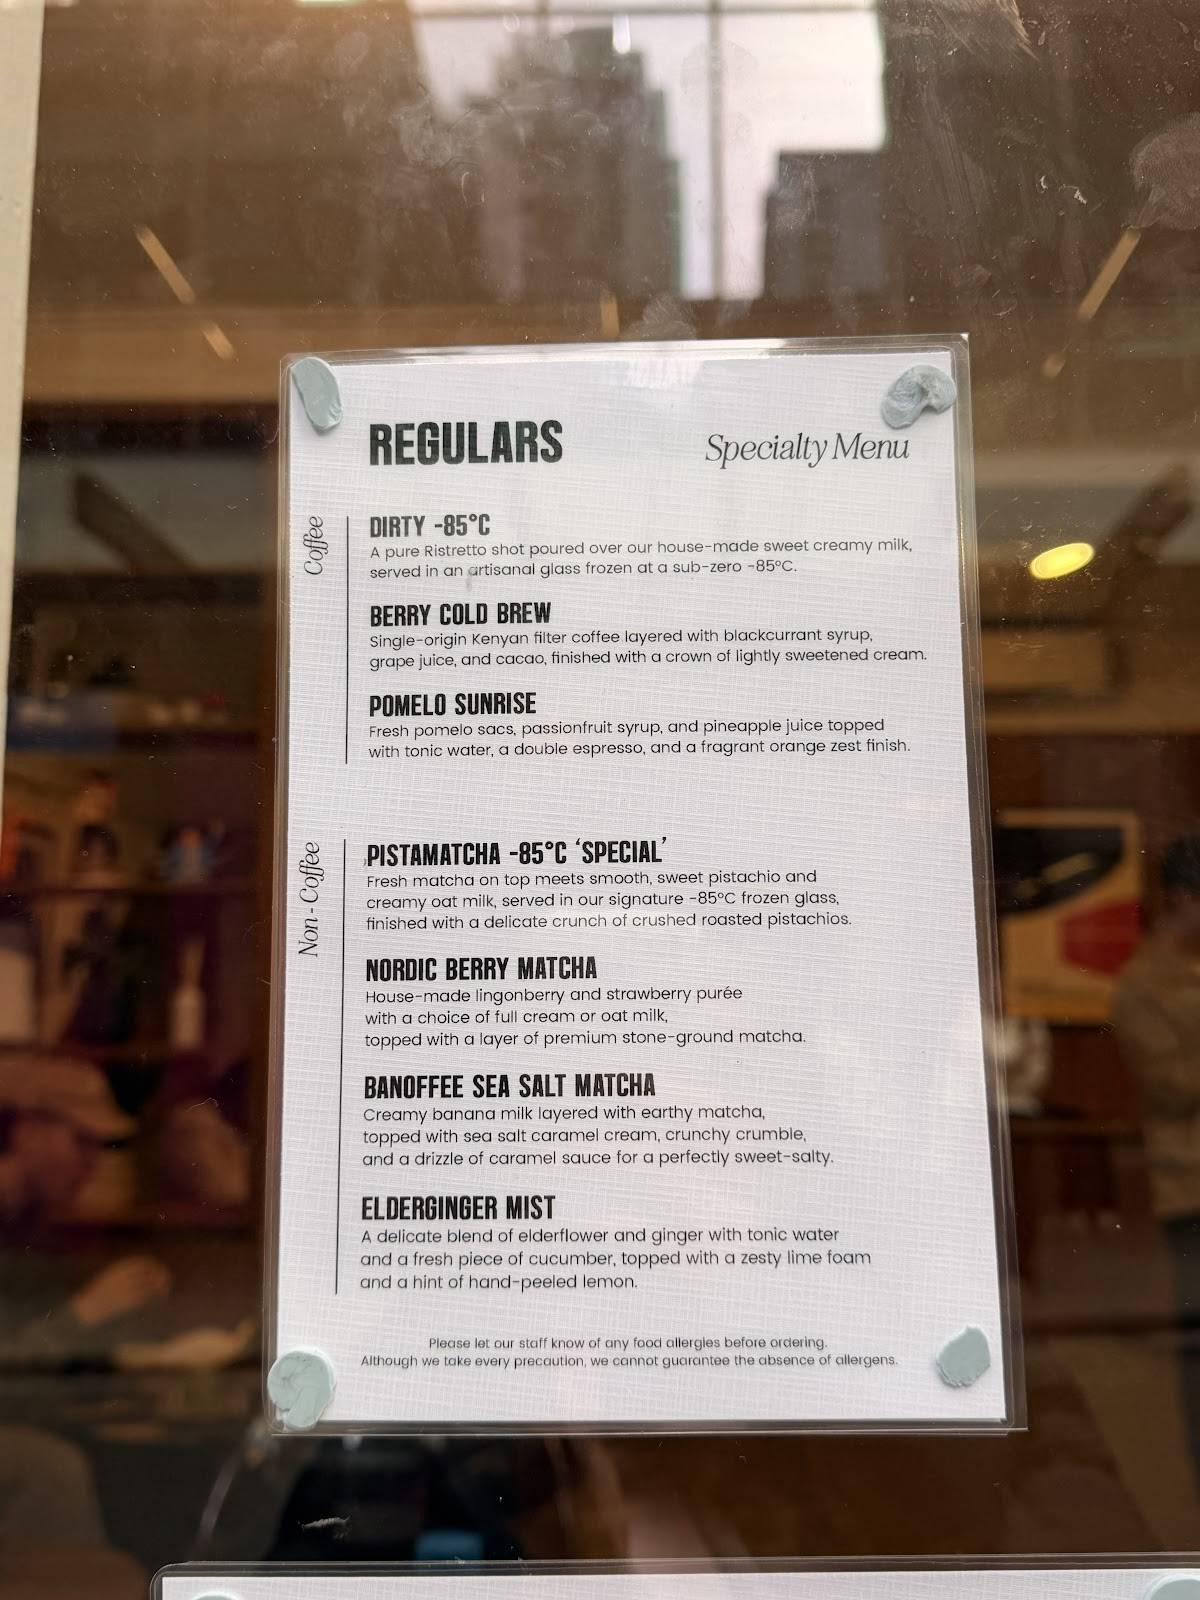 REGULARS
Specialty Menu
Coffee
DIRTY -85°C
A pure Ristretto shot poured over our house-made sweet creamy milk,
served in an artisanal glass frozen at a sub-zero -85°C.
BERRY COLD BREW
Single-origin Kenyan filter coffee layered with blackcurrant syrup,
grape juice, and cacao, finished with a crown of lightly sweetened cream.
POMELO SUNRISE
Fresh pomelo sacs, passionfruit syrup, and pineapple juice topped
with tonic water, a double espresso, and a fragrant orange zest finish.
Non-Coffee
PISTAMATCHA -85°C ‘SPECIAL’
Fresh matcha on top meets smooth, sweet pistachio and
creamy oat milk, served in our signature -85°C frozen glass,
finished with a delicate crunch of crushed roasted pistachios.
NORDIC BERRY MATCHA
House-made lingonberry and strawberry purée
with a choice of full cream or oat milk,
topped with a layer of premium stone-ground matcha.
BANOFFEE SEA SALT MATCHA
Creamy banana milk layered with earthy matcha,
topped with sea salt caramel cream, crunchy crumble,
and a drizzle of caramel sauce for a perfectly sweet-salty.
ELDERGINGER MIST
A delicate blend of elderflower and ginger with tonic water
and a fresh piece of cucumber, topped with a zesty lime foam
and a hint of hand-peeled lemon.
Please let our staff know of any food allergies before ordering.
Although we take every precaution, we cannot guarantee the absence of allergens.